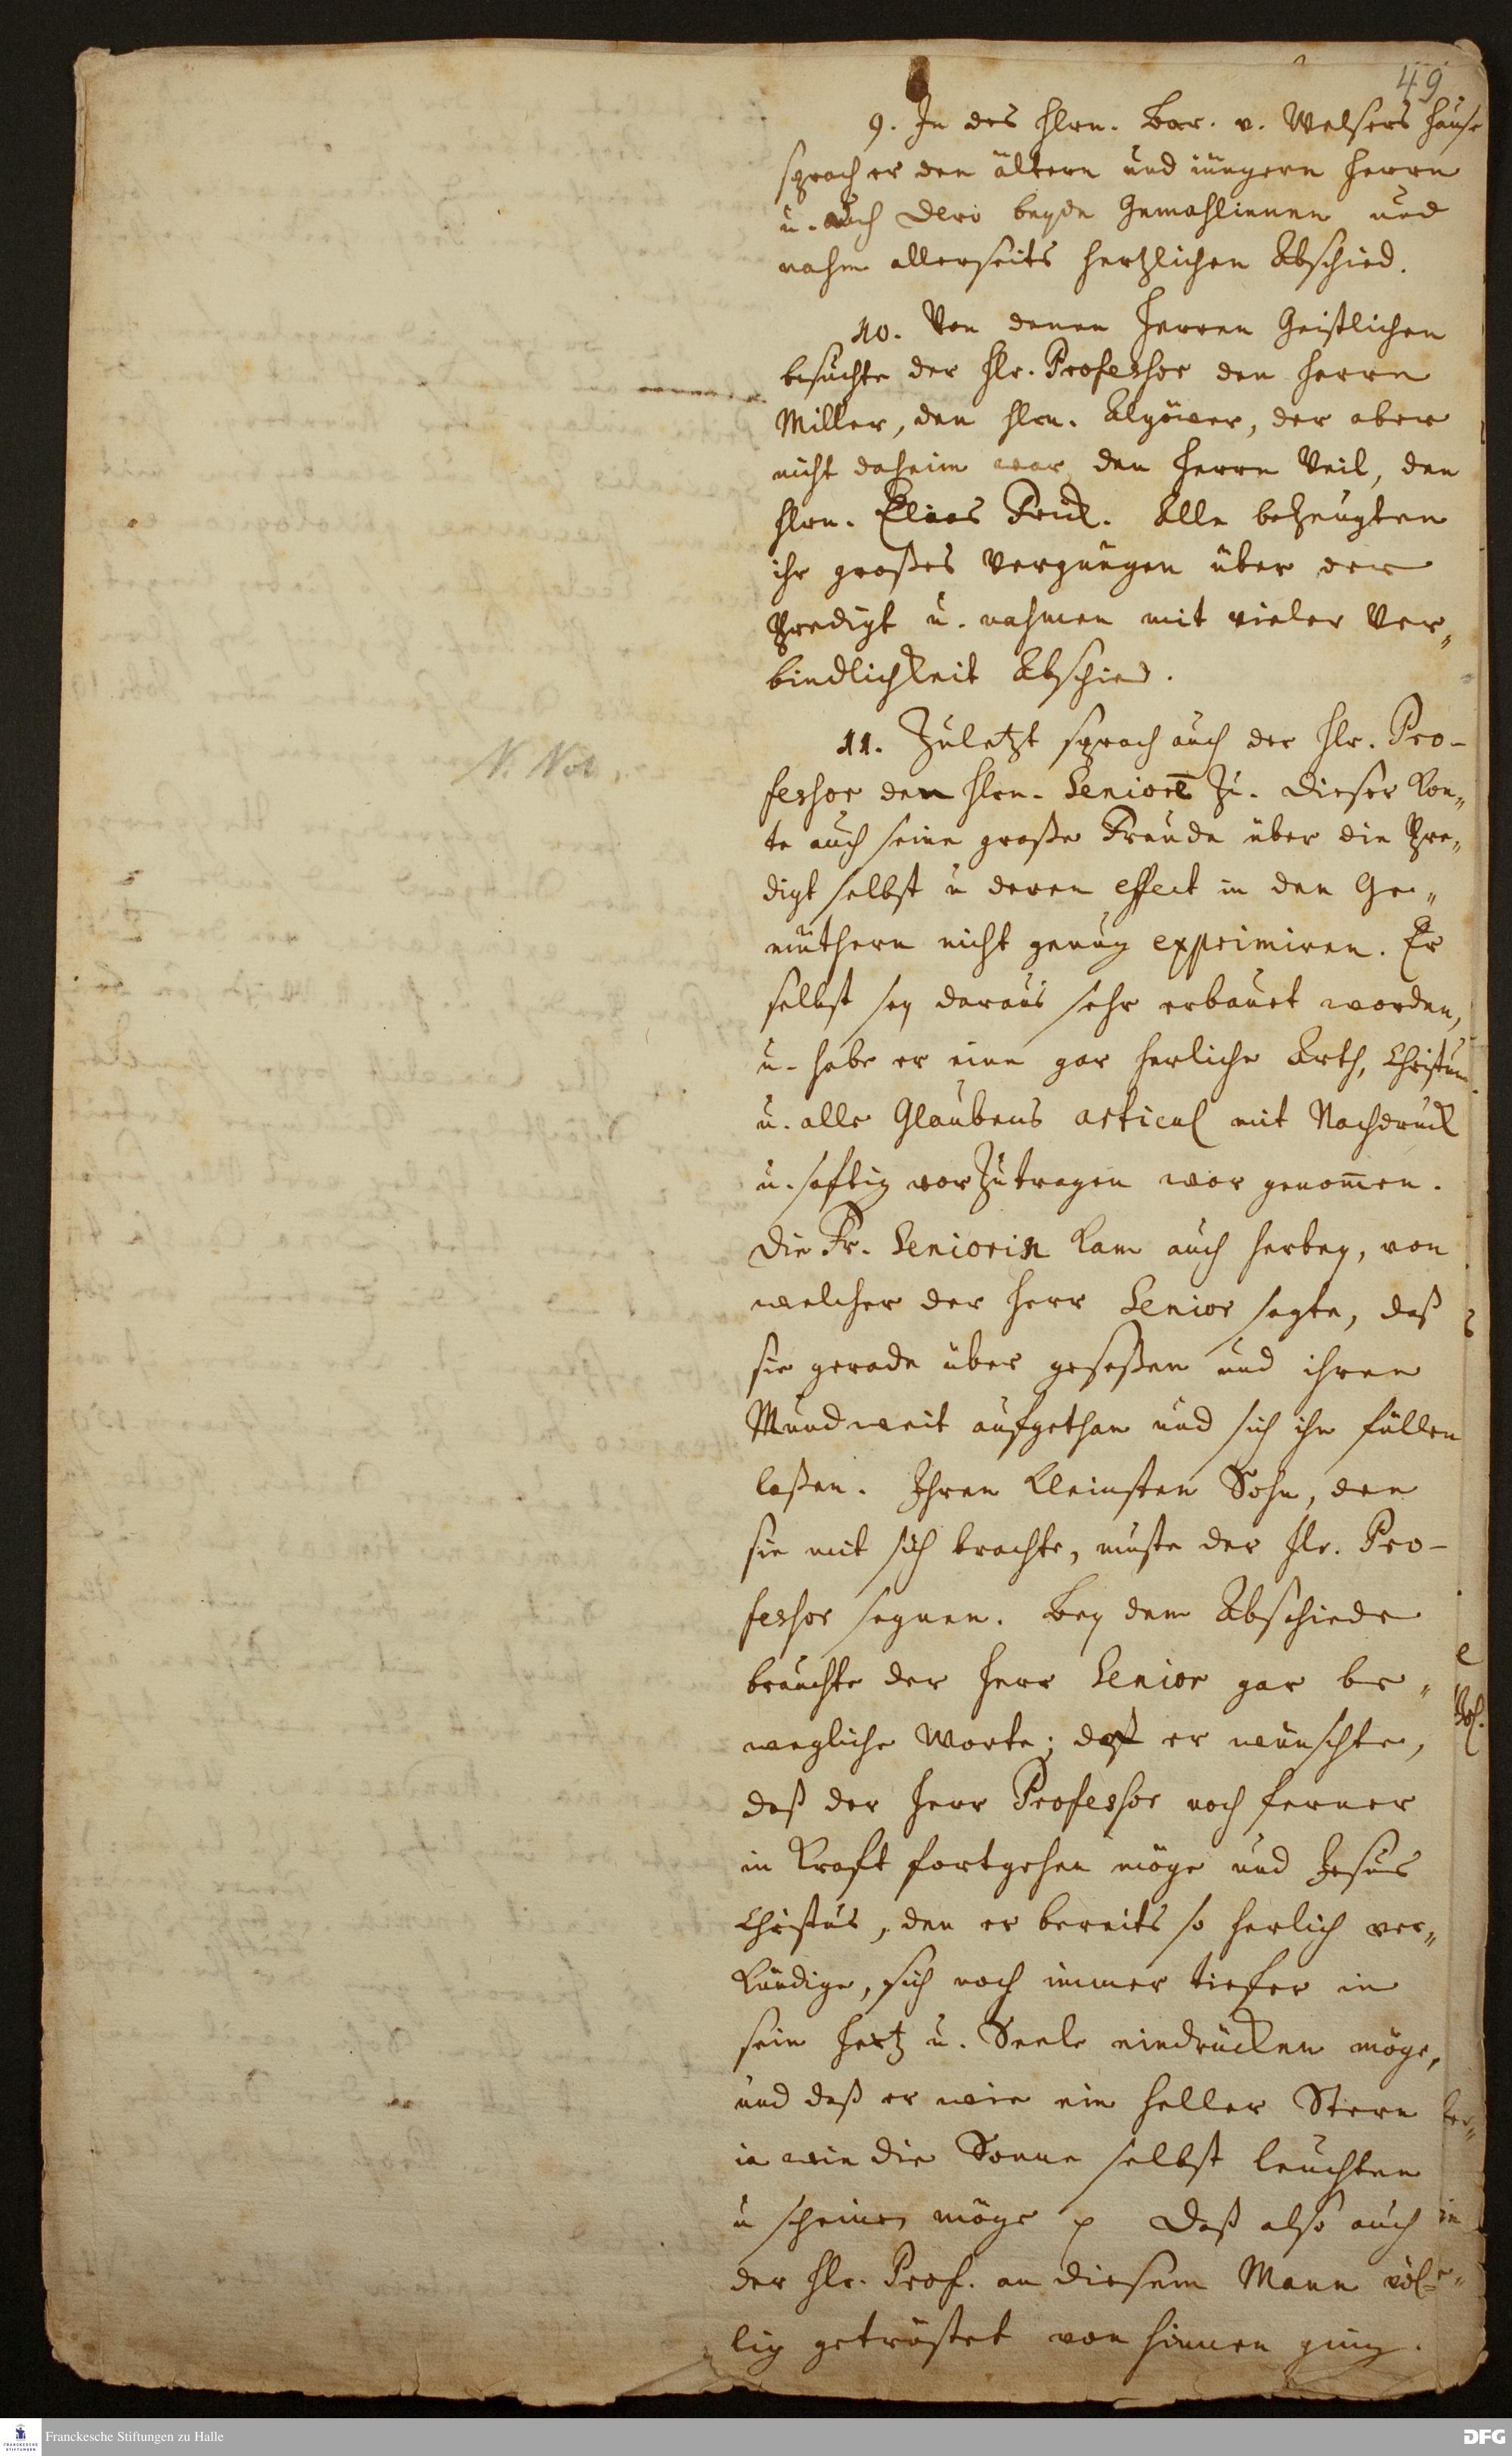 49
9. In des Hlrn. Bar. v. Welsers Hause
sprach er den ältern und jüngern Herrn
u. auch dero beyde Gemahlinnen und
nahm allerseits hertzlichen Abschied.
10. Von denen Herren Geistlichen
besuchte der Hlr. Professor den Herrn
Miller, den Hlrn. Algöwer, der aber
nicht daheim war, den Herrn Veil, den
Hlrn. Elias Frick. Alle bezeugten
ihr großes Vergnügen über der
Predigt u. nahmen mit vieler Ver„
bindlichkeit Abschied.
11. Zuletzt sprach auch der Hlr. Pro-
N. Not.
fessor den Hlrn. Seniorē zu. Dieser kon„
te auch seine große Freude über die Pre„
digt selbst u deren effect in den Ge„
müthern nicht genug exprimiren. Er
selbst sey daraus sehr erbauet worden,
u. habe er eine gar herliche Arth, Christum
u. alle Glaubens articul mit Nachdruck
u. saftig vorzutragen war genom̅en.
Die Fr. Seniorin kam auch herbey, von
welcher der Herr Senior sagte, daß
sie gerade über geseßen und ihren
Mund weit aufgethan und sich ihn füllen
laßen. Ihren kleinsten Sohn, den
sie mit sich brachte, muste der Hlr. Pro-
fessor segnen. Bey dem Abschiede
brauchte der Herr Senior gar be„
wegliche Worte; daß er wünschte,
daß der Herr Professor noch ferner
in Kraft fortgehen möge und Jesus
Christus, den er bereits so herlich ver„
kündige, sich noch immer tiefer in
sein Hertz u. Seele eindrücken möge,
und daß er wie ein heller Stern
ja wie die Sonne selbst leuchten
u scheinen möge p Daß also auch
der Hlr. Prof. an diesem Mann völ„
lig getröstet von hinnen ging.
Franckesche Stiftungen zu Halle
DFG